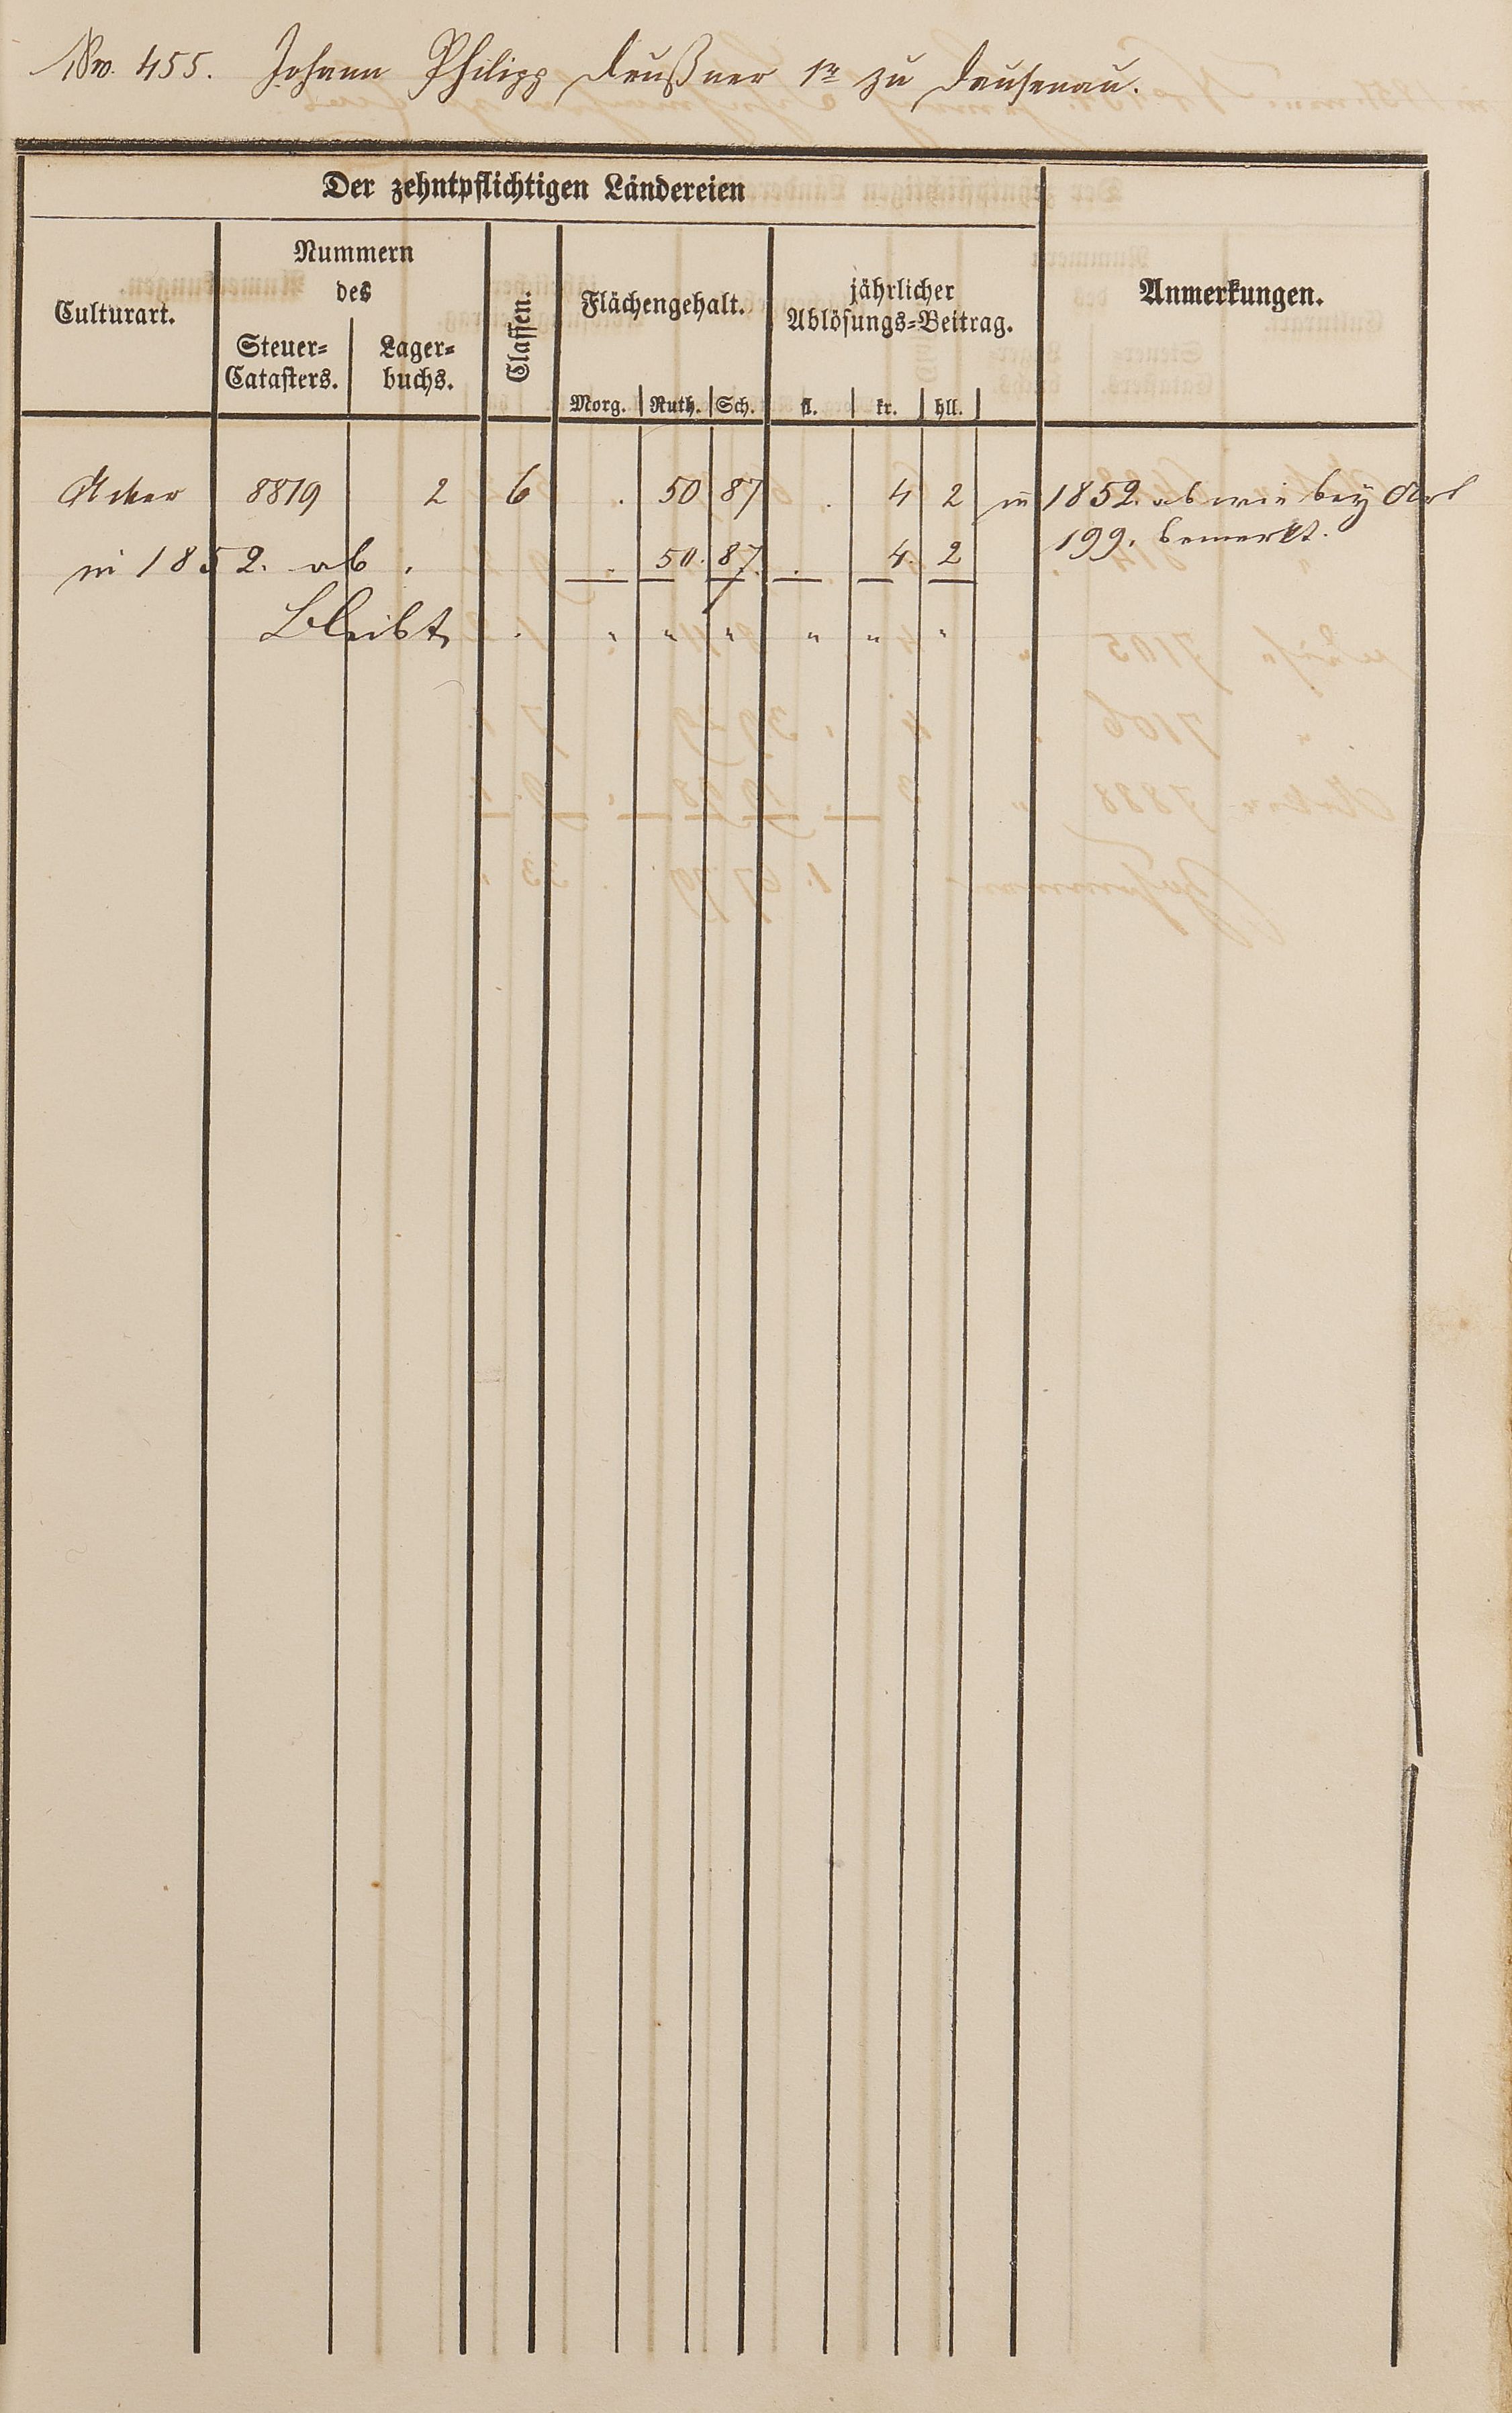 Nro. 455. Johann Philipp Deußner 1r zu Dausenau.
Der zehntpflichtigen Ländereien
Culturart.
Nummern
des
Steuer-
Catasters.
Lager-
buchs.
Classen.
Flächengehalt.
Morg. Ruth. Sch.
jährlicher
Ablösungs-Beitrag.
fl. kr. hll.
Anmerkungen.
Acker 8819 2 6 . 50 87 . 4 2 in 1852. ab wie bey Art
199. bemerkt.
in 1852. ab . . 50. 87. . 4. 2
Bleibt . " " " " " "